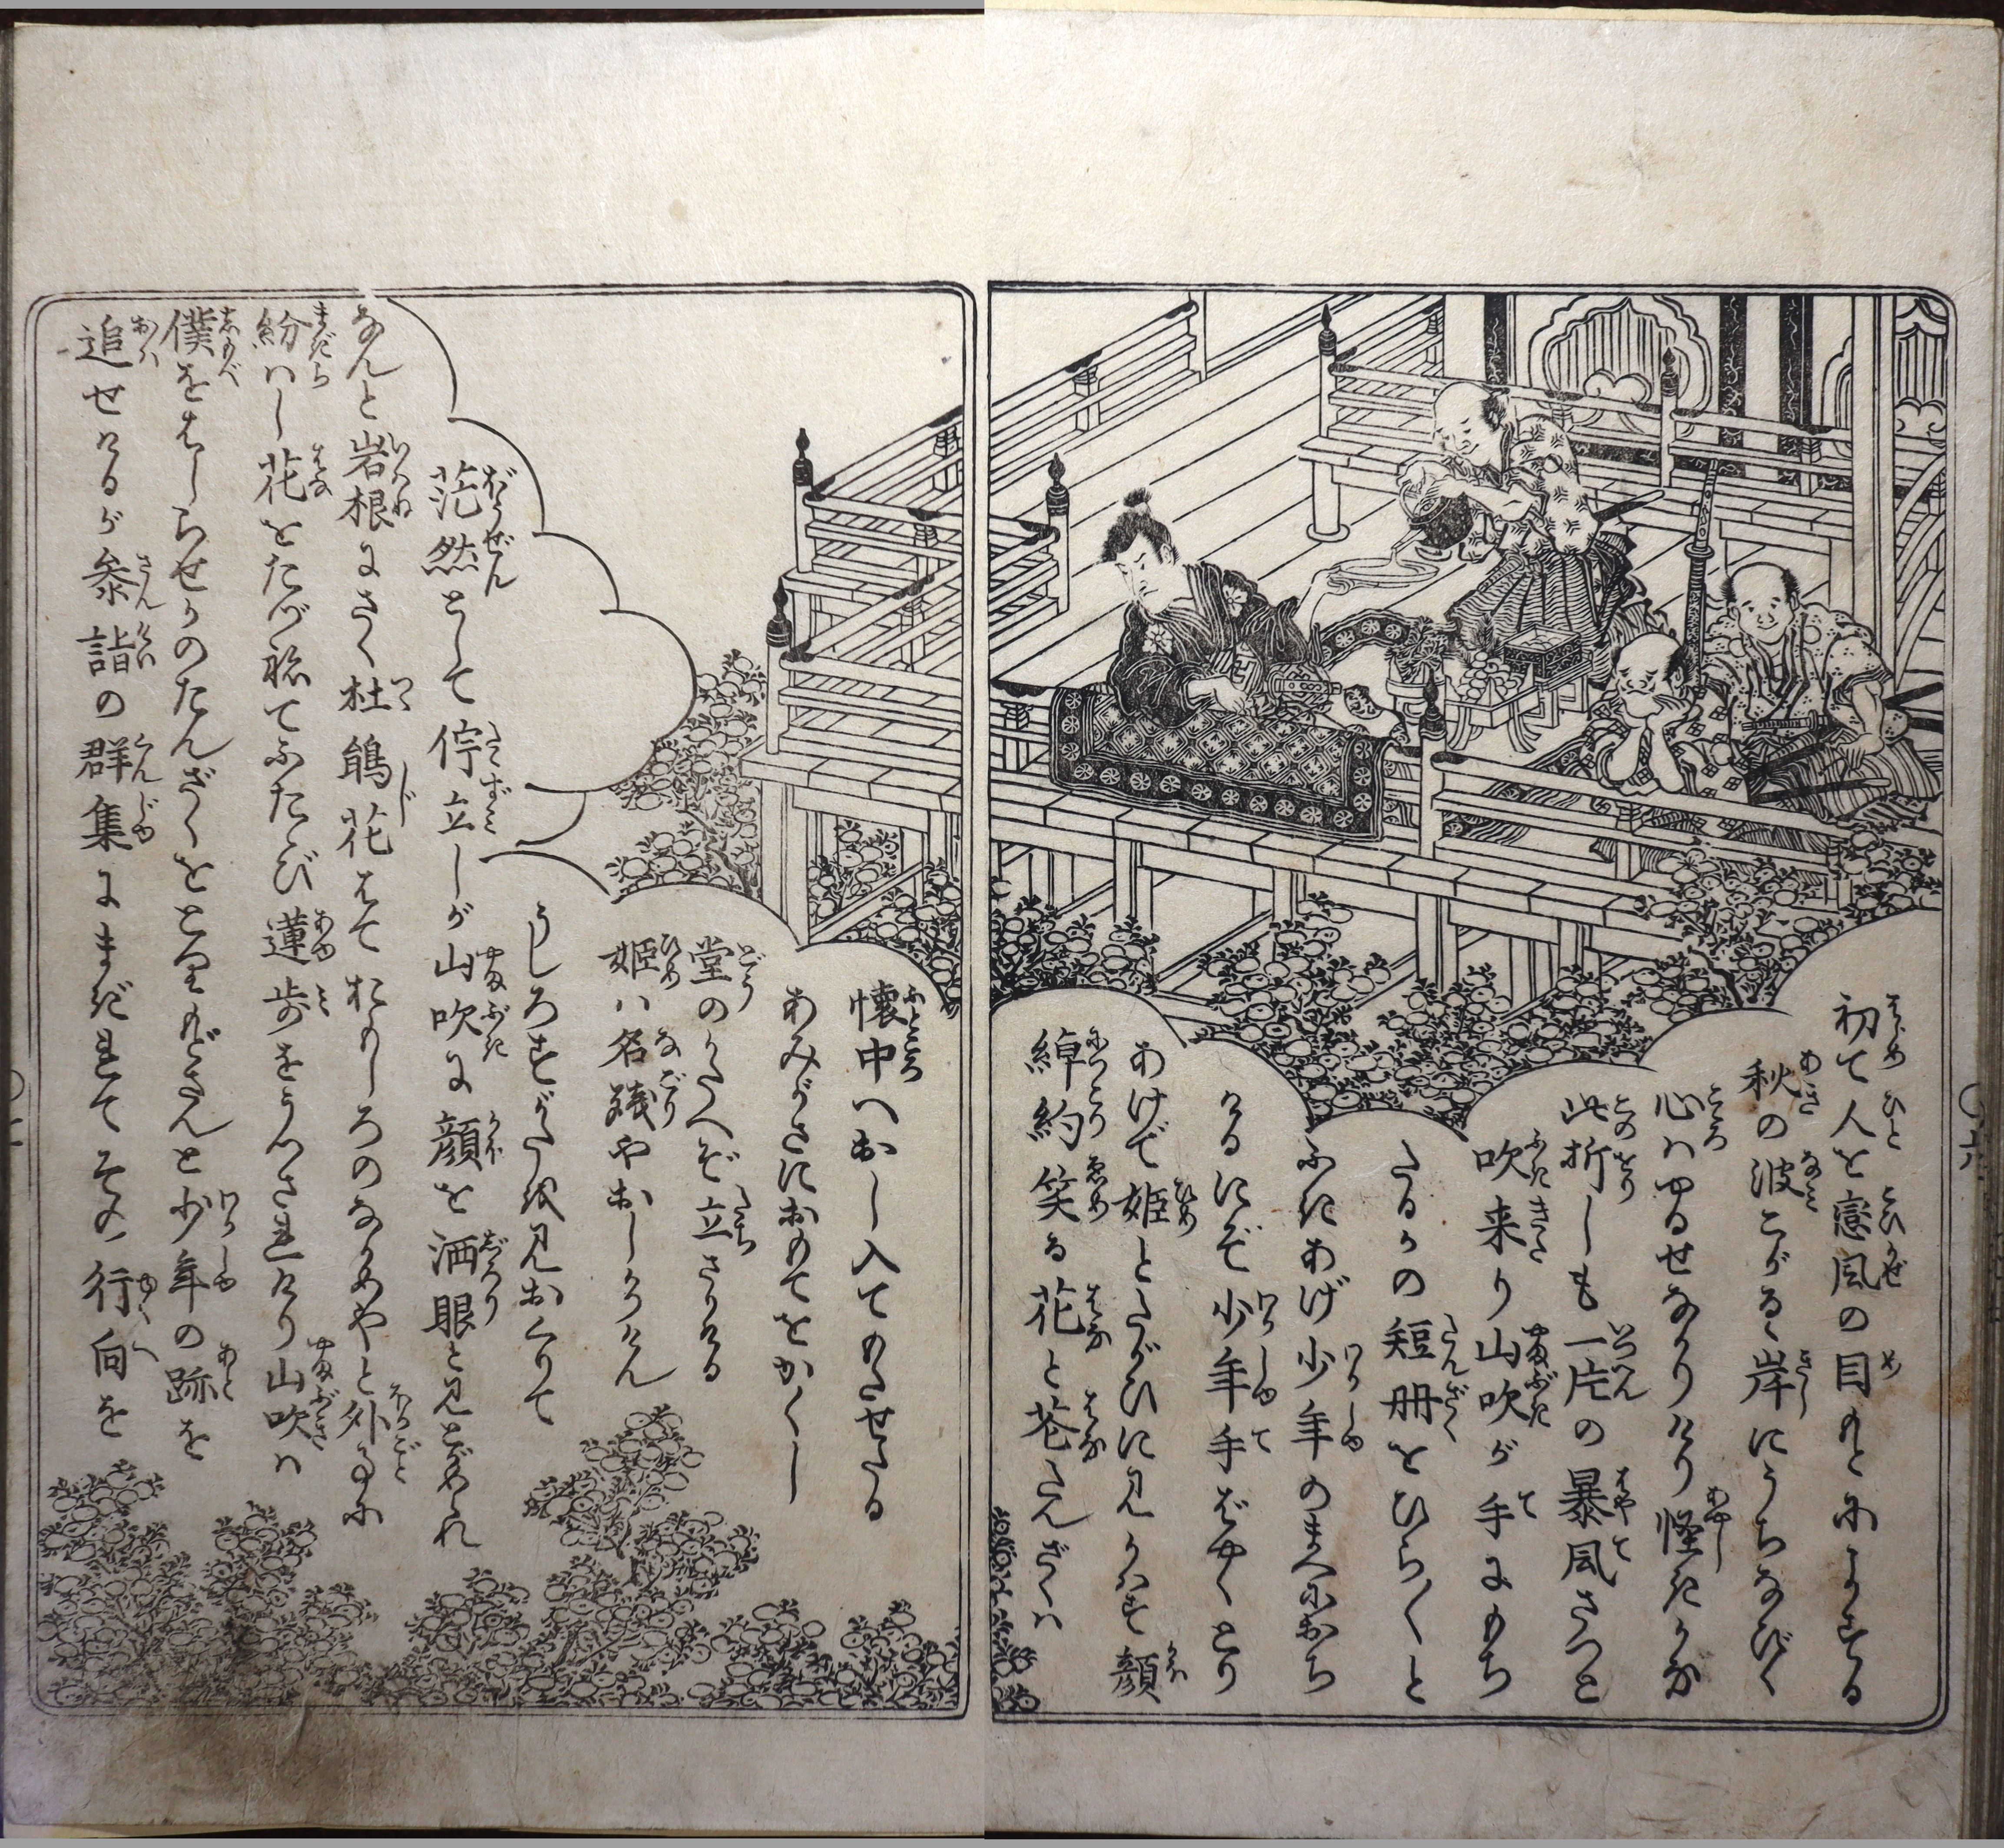 初て人を恋風の目もとによする
秋の波こがるゝ岸にうちなびく
心はゆるせなかりけり怪きかな
此折しも一片の暴風さつと
吹来り山吹が手にもち
たるかの短冊をひら〳〵と
ふきあげ少年のまへにおち
けるにぞ少年手ばやくとり
あげて姫とたがひに見かはす顔
綽約笑る花と花たんざくは
懐中へおし入てのさせたる
あみがさにおもてをかくし
堂のかたへぞ立さりける
姫は名残やおしかりけん
うしろすがたを見おくりて
茫然として佇立しが山吹に顔を洒眼と見とがめられ
なんと岩根にさく杜鵑花はておもしろのながめやと外事に
紛はし花をたづねてふたゝび蓮歩をうつされけり山吹は
僕をはしらせかのたんざくをとりもどさんと少年の跡を
追せけるが参詣の群集にまぎれてその行向を